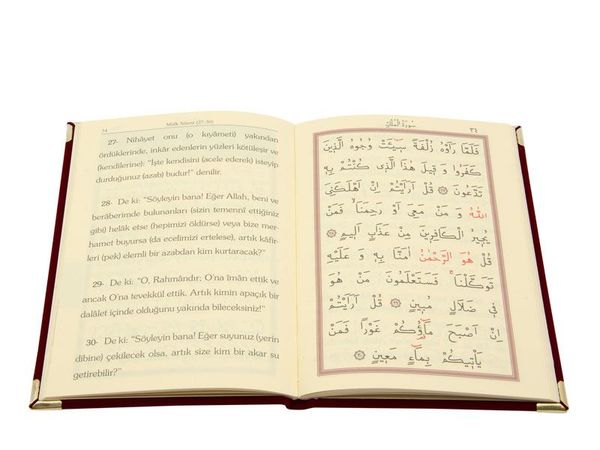 34
Mülk Sûresi (27-30)
27- Nihâyet onu (o kıyâmeti) yakından
ördüklerinde, inkâr edenlerin yüzleri kötüleşir ve
(kendilerine): "İşte kendisini (acele ederek) isteyip
durduğunuz (azab) budur!" denilir.
28- De ki: "Söyleyin bana! Eğer Allah, beni ve
berâberimde bulunanları (sizin temennî ettiğiniz
gibi) helâk etse (hepimizi öldürse) veya bize mer-
hamet buyursa (da ecelimizi ertelese), artık kâfir-
leri (pek) elemli bir azabdan kim kurtaracak?"
29- De ki: "O, Rahmândır; O'na îmân ettik ve
ancak O'na tevekkül ettik. Artık kimin apaçık bir
dalâlet içinde olduğunu yakında bileceksiniz!"
30- De ki: "Söyleyin bana! Eğer suyunuz (yerin
dibine) çekilecek olsa, artık size kim bir akar su
getirebilir?"
سُورَةُ الْمُلْكِ
٣٤
فَلَمَّا رَاَوْهُ زُلْفَةً سٖٓيـَٔتْ وُجُوهُ الَّذٖينَ
كَفَرُوا وَ قٖيلَ هٰذَا الَّذٖى كُنْتُمْ بِهٖ
تَدَّعُونَ ۞ قُلْ اَرَاَيْتُمْ اِنْ اَهْلَكَنِىَ
اللّٰهُ وَ مَنْ مَعِىَ اَوْ رَحِمَنَاۙ فَمَنْ
يُجٖيرُ الْكَافِرٖينَ مِنْ عَذَابٍ اَلٖيمٍ ۞
قُلْ هُوَ الرَّحْمٰنُ اٰمَنَّا بِهٖ وَ عَلَيْهِ
تَوَكَّلْنَاۚ فَسَتَعْلَمُونَ مَنْ هُوَ
فٖى ضَلَالٍ مُبٖينٍ ۞ قُلْ اَرَاَيْتُمْ
اِنْ اَصْبَحَ مَٓاؤُكُمْ غَوْرًا فَمَنْ
يَاْتٖيكُمْ بِمَٓاءٍ مَعٖينٍ ۞